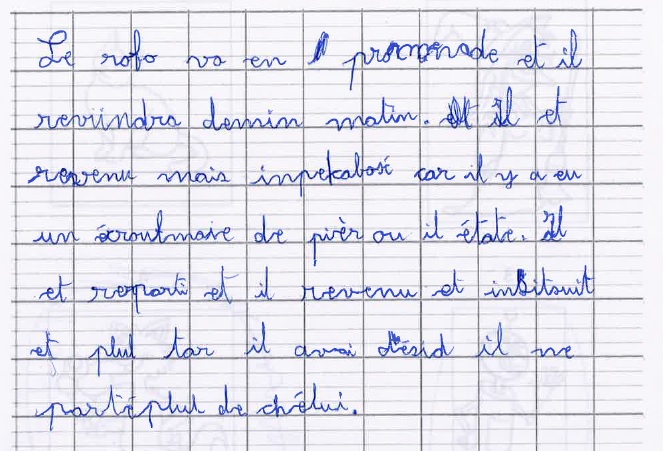 Le rofo va en promenade et il
reviindra demin matin. Il et
revenu mais inpekabosé car il y a eu
un écroutmaire de pièr ou il étate. Il
et reparti et il revenu et insitsuit
et plul tar il avai désid il ne
partéplul de chélui.